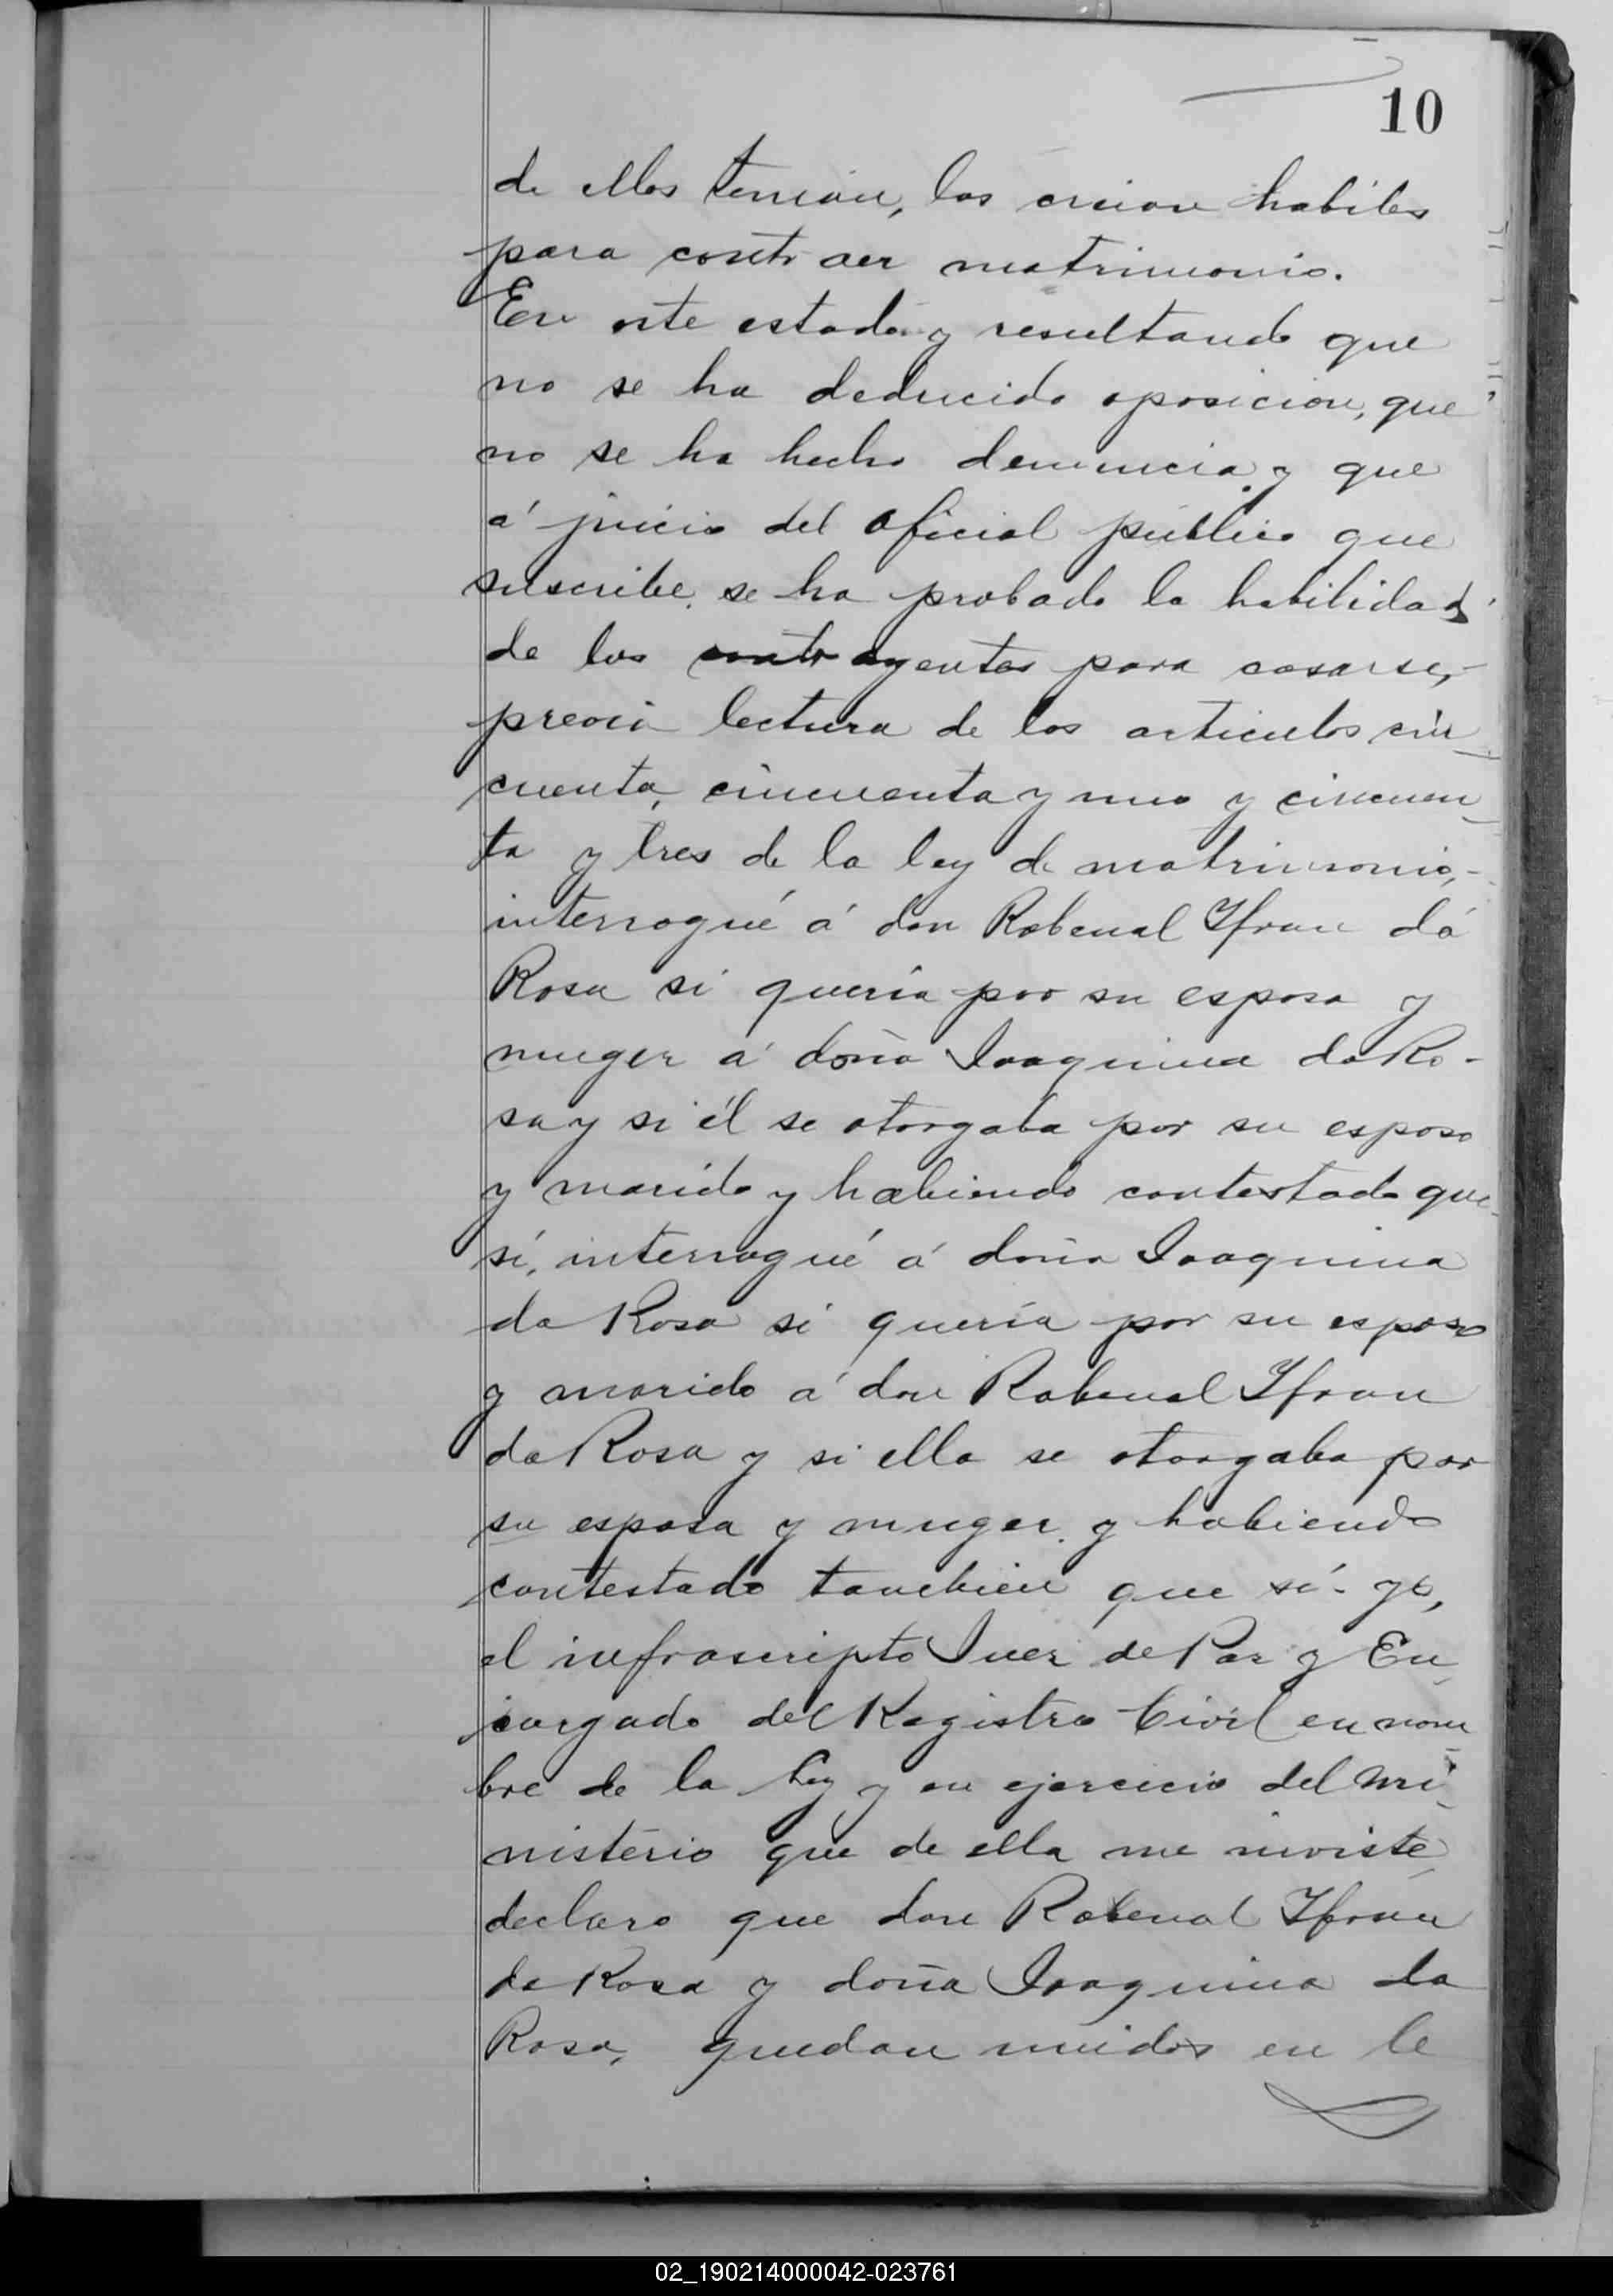 10
de ellos tenian, los creian habiles
para contraer matrimonio.
En este estado y resultando que
no se ha deducido oposicion, que
no se ha hecho denuncia y que
á juicio del oficial público que
suscribe, se ha probado la habilidad
de los contrayentes para casarse,-
previa lectura de los articulos cin_
cuenta, cincuenta y uno y cincuen_
ta y tres de la ley de matrimonio,-
interrogué á don Robenal Yfran dá
Rosa si quería por su esposa y
muger á doña Joaquina da Ro-
sa y si él se otorgaba por su esposo
y marido y habiendo contestado que
sí, interrogué á doña Joaquina
da Rosa si quería por su esposo
y marido á don Robenal Yfran
da Rosa y si ella se otorgaba por
su esposa y muger, y habiendo
contestado tambien que sí- yo,
el infrascripto Juez de Paz y En_
cargado del Registro Civil en nom
bre de la ley y en ejercicio del mi_
nisterio que de ella me inviste
declaro que don Robenal Yfrán
da Rosa y doña Joaquina da
Rosa, quedan unidos en le
02_190214000042-023761